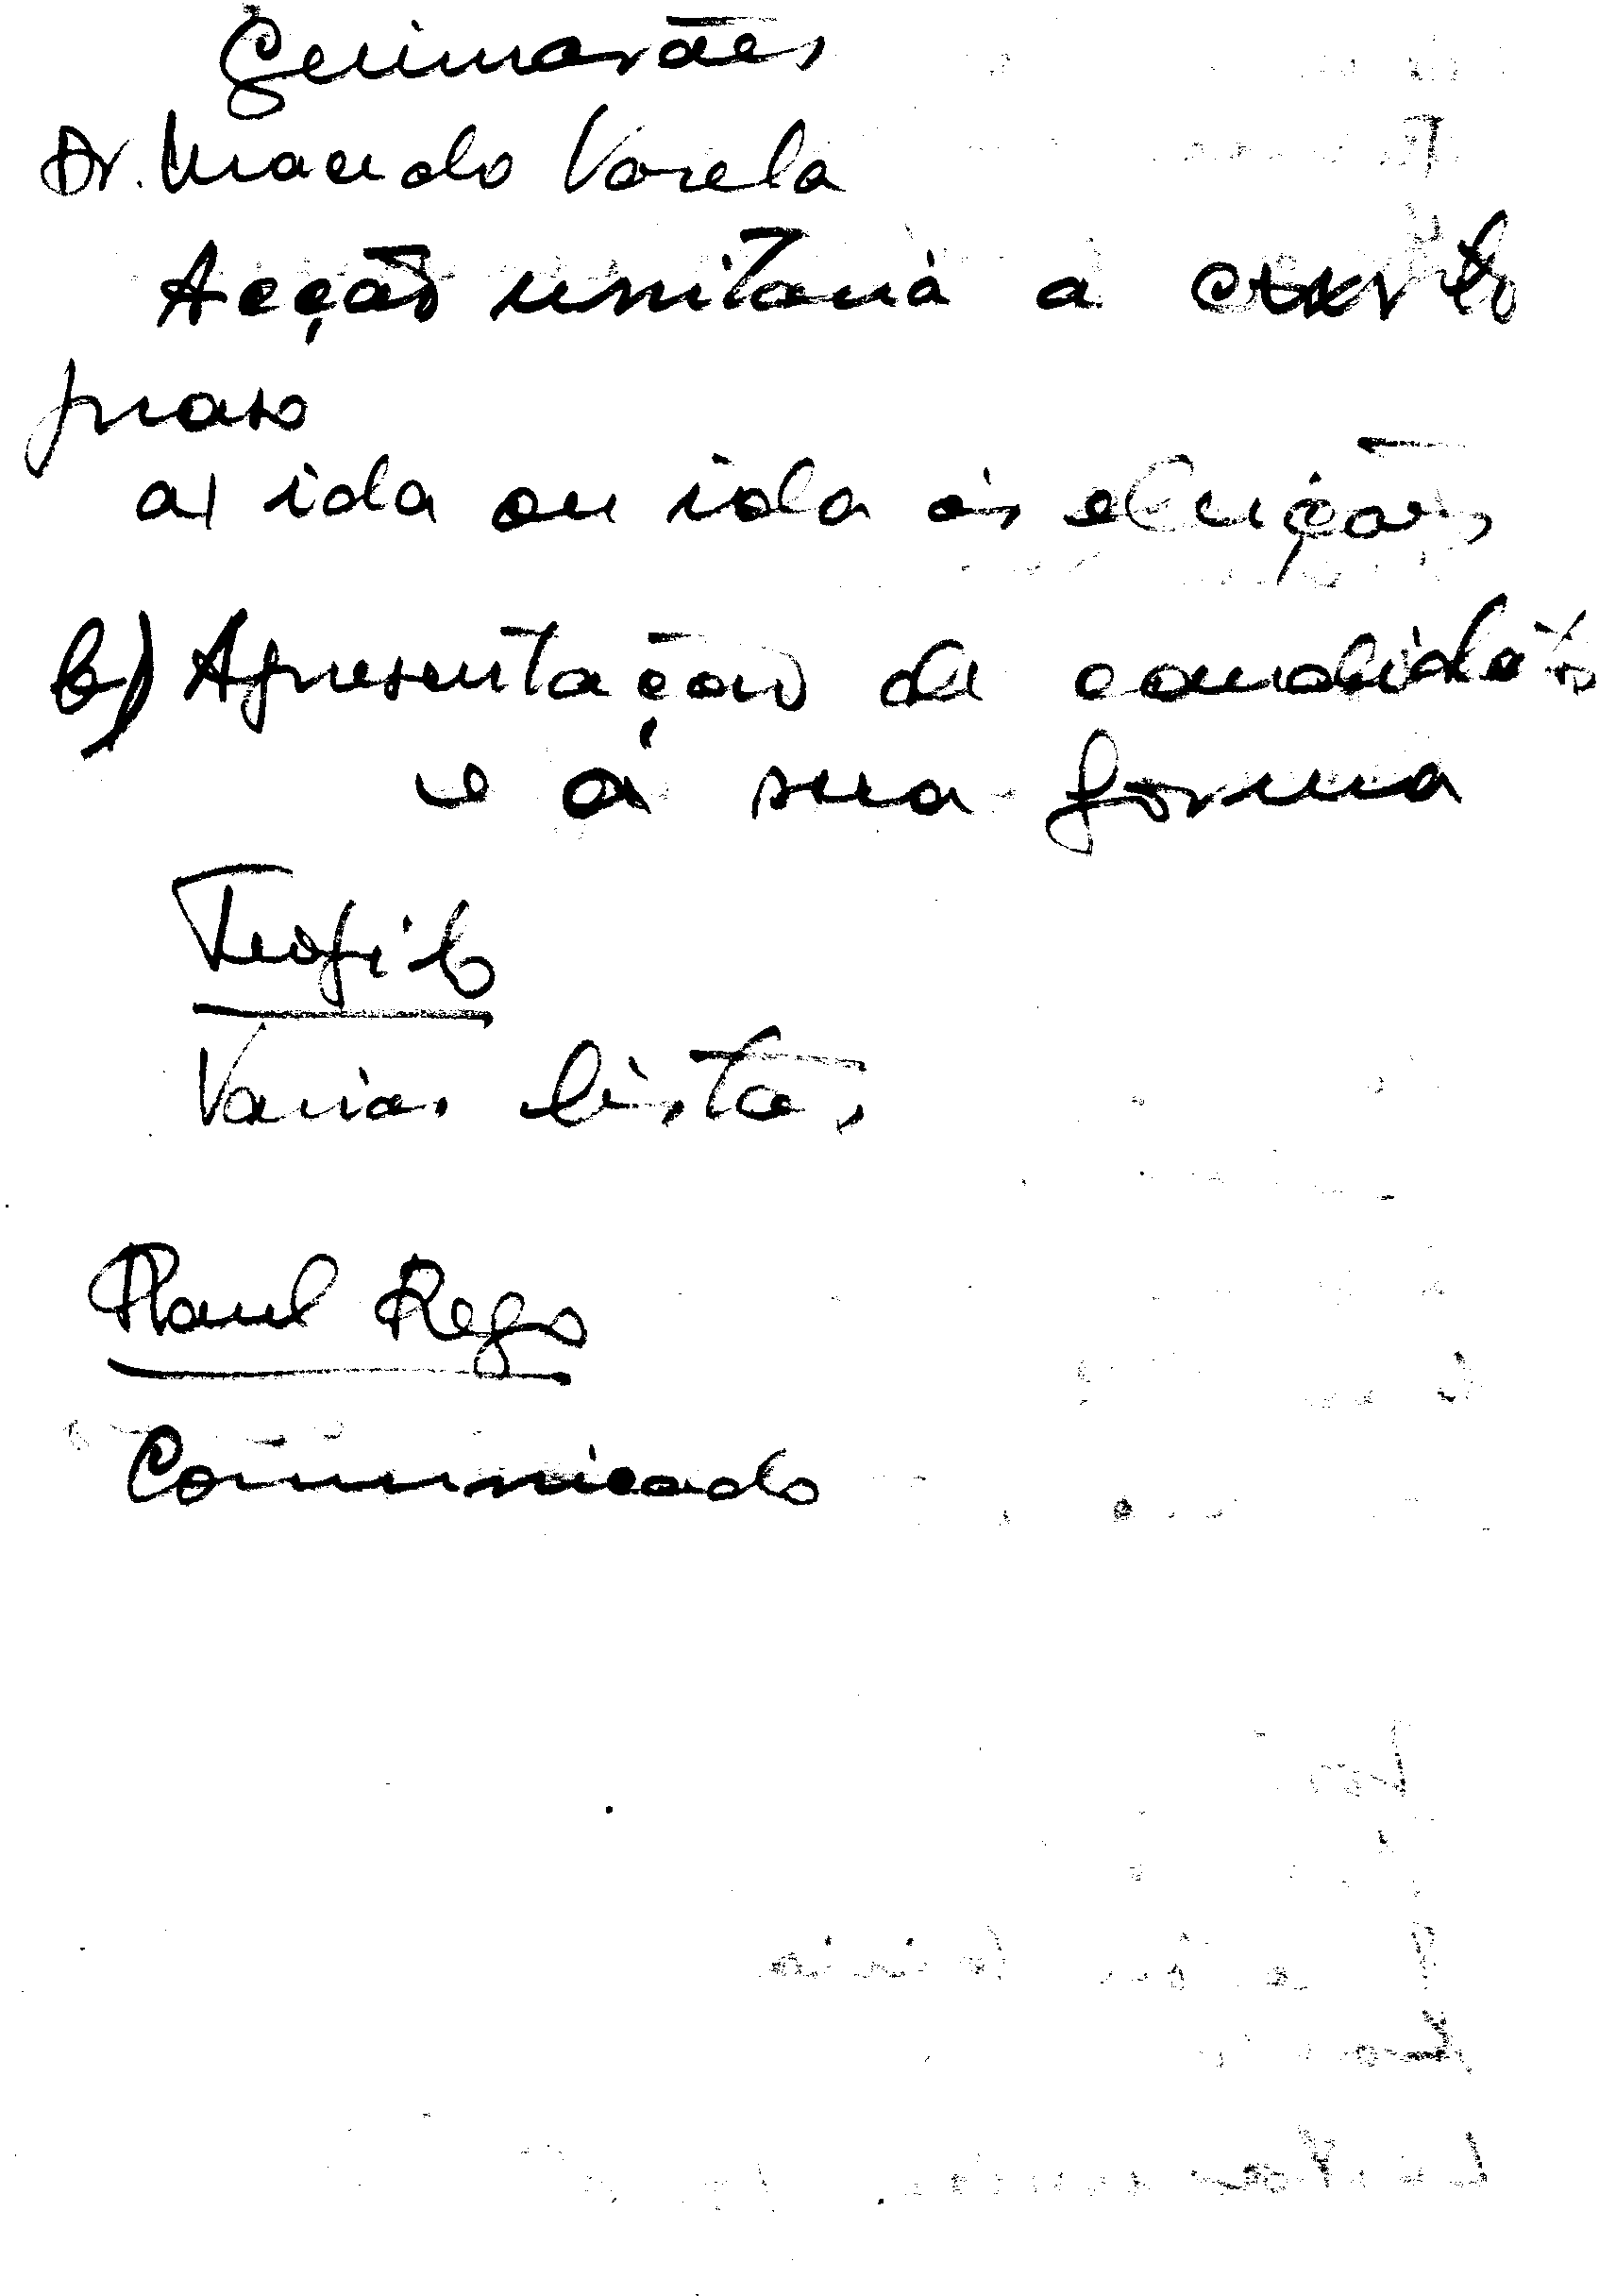 Guimarães
Dr. Macedo Varela
Acção unitaria a curto
praso
a) ida ou ida às eleições
b) Apresentação de candidatos
e a sua forma
Teofilo
Varias listas
Raul Rego
Comunicado